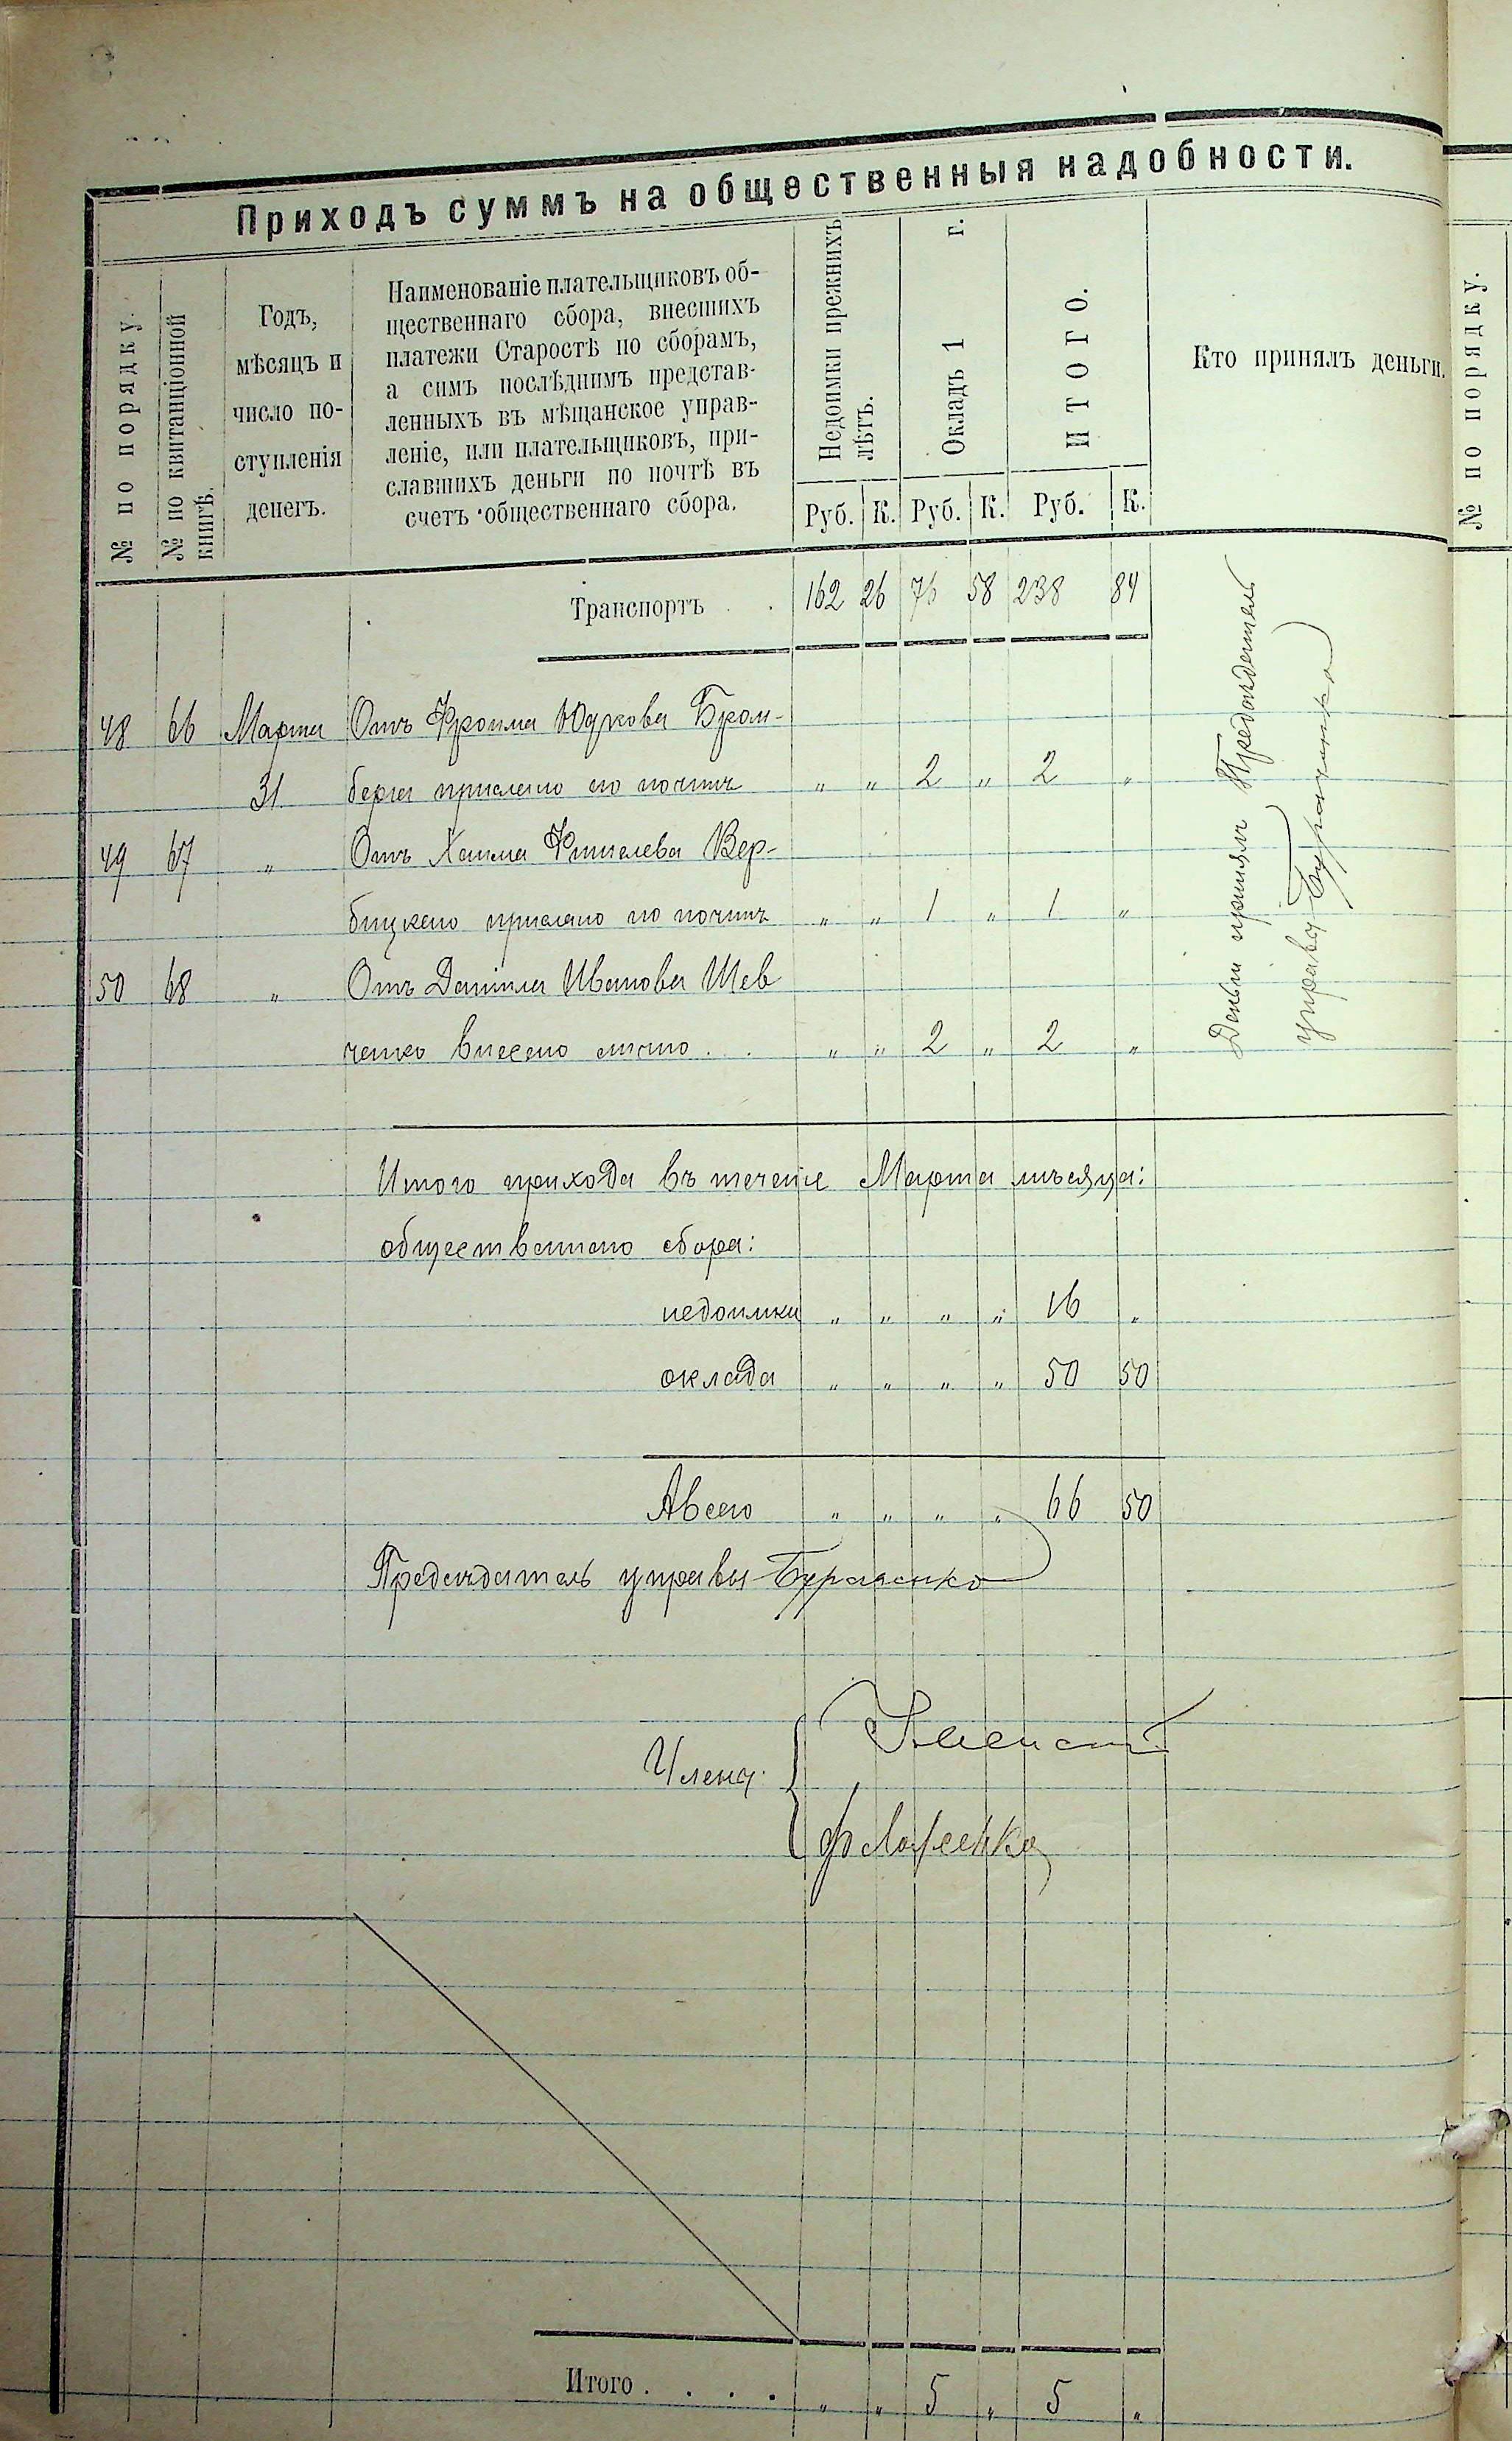 Приходъ суммъ на общественныя надобности.
№ по порядку.
№ по квитанціонной
книгѣ.
Годъ,
мѣсяцъ и
число по-
ступленія
денегъ.
Наименованіе плательщиковъ об-
щественнаго сбора, внесшихъ
платежи Старостѣ по сборамъ,
а симъ послѣднимъ представ-
ленныхъ въ мѣщанское управ-
леніе, или плательщиковъ, при-
славшихъ деньги по почтѣ въ
счетъ общественнаго сбора.
Недоимки прежнихъ
лѣтъ.
Окладъ 1 г.
ИТОГО.
Руб. К. Руб. К. Руб. К.
Кто принялъ деньги.
№ по порядку.
Транспортъ . . 162 26 76 58 238 84
48 66 Марта Отъ Фроима Юдкова Бром-
31 берга прислано по почтѣ " " 2 " 2 "
49 67 " Отъ Хаима Фишелева Вер-
бицкаго прислано по почтѣ " " 1 " 1 "
50 68 " Отъ Даніила Иванова Шев
ченко внесено лично . . " " 2 " 2 "
Деньги принялъ Предсѣдатель
управы
Итого прихода въ теченіе Марта мѣсяца:
общественнаго сбора:
недоимки " " " " 16 "
оклада " " " " 50 50
А всего " " " " 66 50
Предсѣдатель управы
Члены
Итого . . . . " " 5 " 5 "